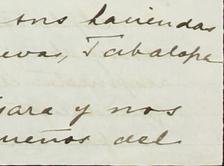 sus haciendas
evas, Tabalopa
para y nos
ueños del